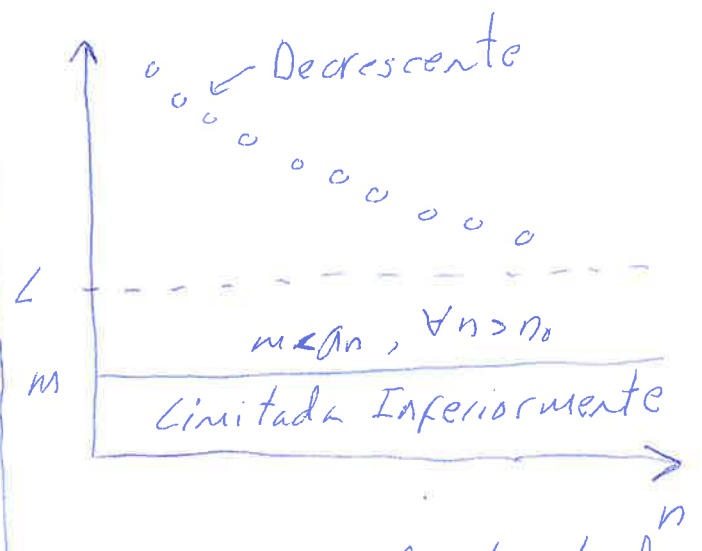 Decrescente
L
m < an, ∀n > n0
m
Limitada Inferiormente
n